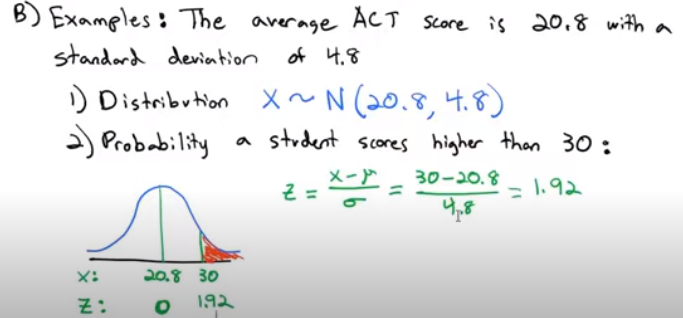 B) Examples: The average ACT score is 20.8 with a
standard deviation of 4.8
1) Distribution X ~ N(20.8, 4.8)
2) Probability a student scores higher than 30:
z = x-μ/σ = 30-20.8/4.8 = 1.92
x: 20.8 30
z: 0 1.92